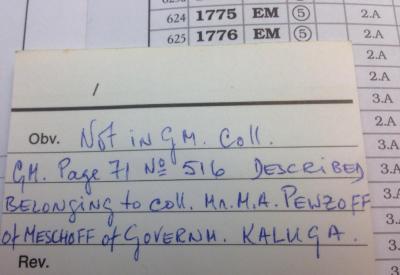 624 1775 EM 5 2.A
625 1776 EM 5 2.A
2.A
2.A
3.A
/
2.A
Obv. Not in GM. Coll.
3.A
GM. Page 71 No 516 DESCRIBED
3.A
BELONGING to coll. Mr. M.A. PEWZOFF
3.A
of MESCHOFF of GOVERNM. KALUGA.
3.A
Rev.
3.A